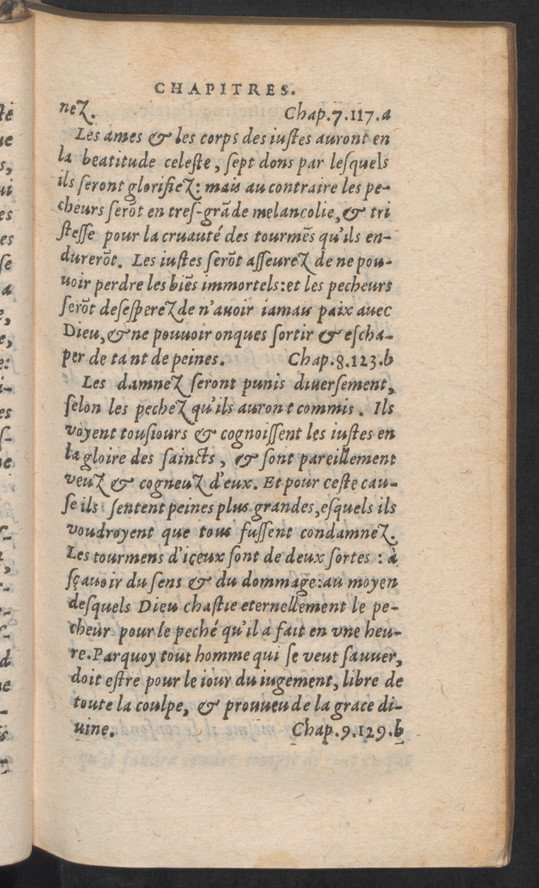 CHAPITRES.
nez. Chap.7.117.a
Les ames & les corps des iustes auront en
la beatitude celeste, sept dons par lesquels
ils seront glorifiez: mais au contraire les pe-
cheurs serõt en tres-grãde melancolie, & tri
stesse pour la cruauté des tourmẽs qu'ils en-
durerõt. Les iustes serõt asseurez de ne pou-
uoir perdre les biẽs immortels: et les pecheurs
serõt desesperez de n'auoir iamais paix auec
Dieu, & ne pouuoir onques sortir & escha-
per de tant de peines. Chap.8.123.b
Les damnez seront punis diuersement,
selon les pechez qu'ils auront commis. Ils
voyent tousiours & cognoissent les iustes en
la gloire des saincts, & sont pareillement
veuz & cogneuz d'eux. Et pour ceste cau-
se ils sentent peines plus grandes, esquels ils
voudroyent que tous fussent condamnez.
Les tourmens d'iceux sont de deux sortes: à
sçauoir du sens & du dommage: au moyen
desquels Dieu chastie eternellement le pe-
cheur pour le peché qu'il a fait en vne heu-
re. Parquoy tout homme qui se veut sauuer,
doit estre pour le iour du iugement, libre de
toute la coulpe, & prouueu de la grace di-
uine. Chap.9.129.b